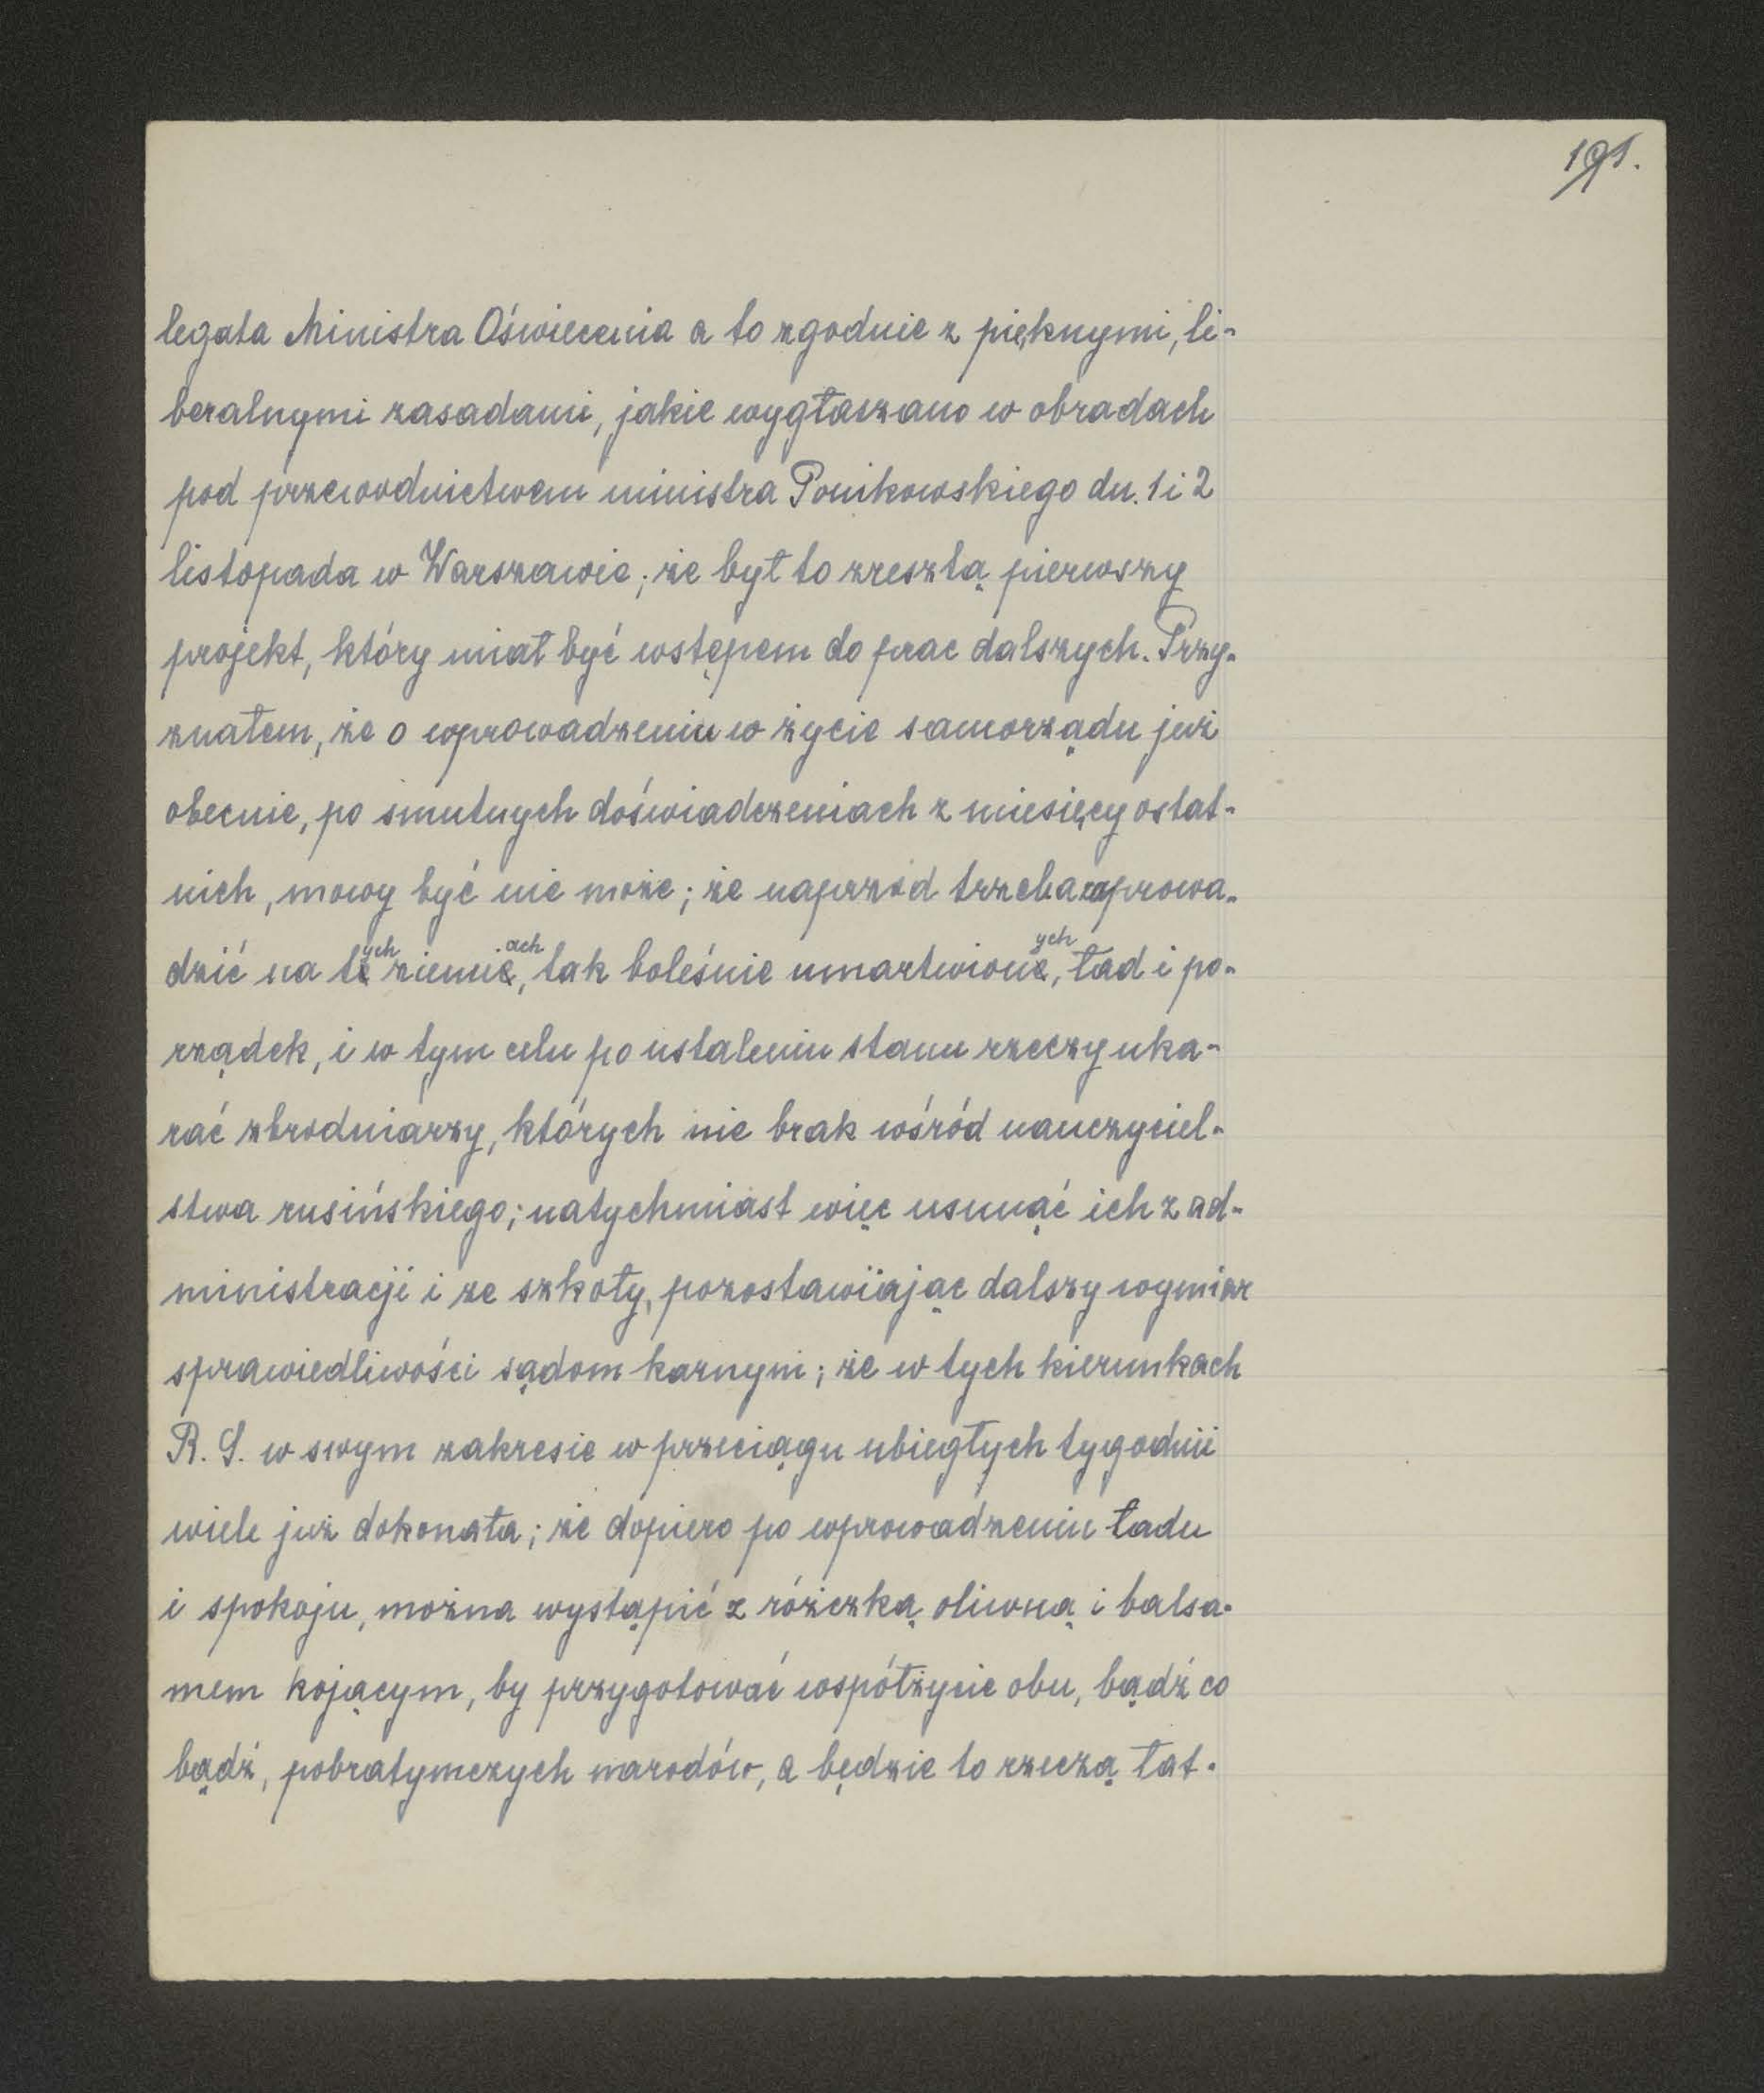 191.
legata Ministra Oświecenia a to zgodnie z pięknymi, li-
beralnymi zasadami, jakie wygłaszano w obradach
pod przewodnictwem ministra Ponikowskiego dn. 1 i 2
listopada w Warszawie; że był to zresztą pierwszy
projekt, który miał być wstępem do prac dalszych. Przy-
znałem, że o wprowadzeniu w życie samorządu już
obecnie, po smutnych doświadczeniach z miesięcy ostat-
nich, mowy być nie może; że naprzód trzeba wprowa-
dzić na tych ziemiach, tak boleśnie umartwionych, ład i po-
rządek, i w tym celu po ustaleniu stanu rzeczy uka-
rać zbrodniarzy, których nie brak wśród nauczyciel-
stwa rusińskiego; natychmiast więc usunąć ich z ad-
ministracji i ze szkoły, pozostawiając dalszy wymiar
sprawiedliwości sądom karnym; że w tych kierunkach
R. S. w swym zakresie w przeciągu ubiegłych tygodni
wiele już dokonała; że dopiero po wprowadzeniu ładu
i spokoju, można wystąpić z różczką oliwną i balsa-
mem kojącym, by przygotować współżycie obu, bądź co
bądź, pobratymczych narodów, a będzie to rzeczą łat-